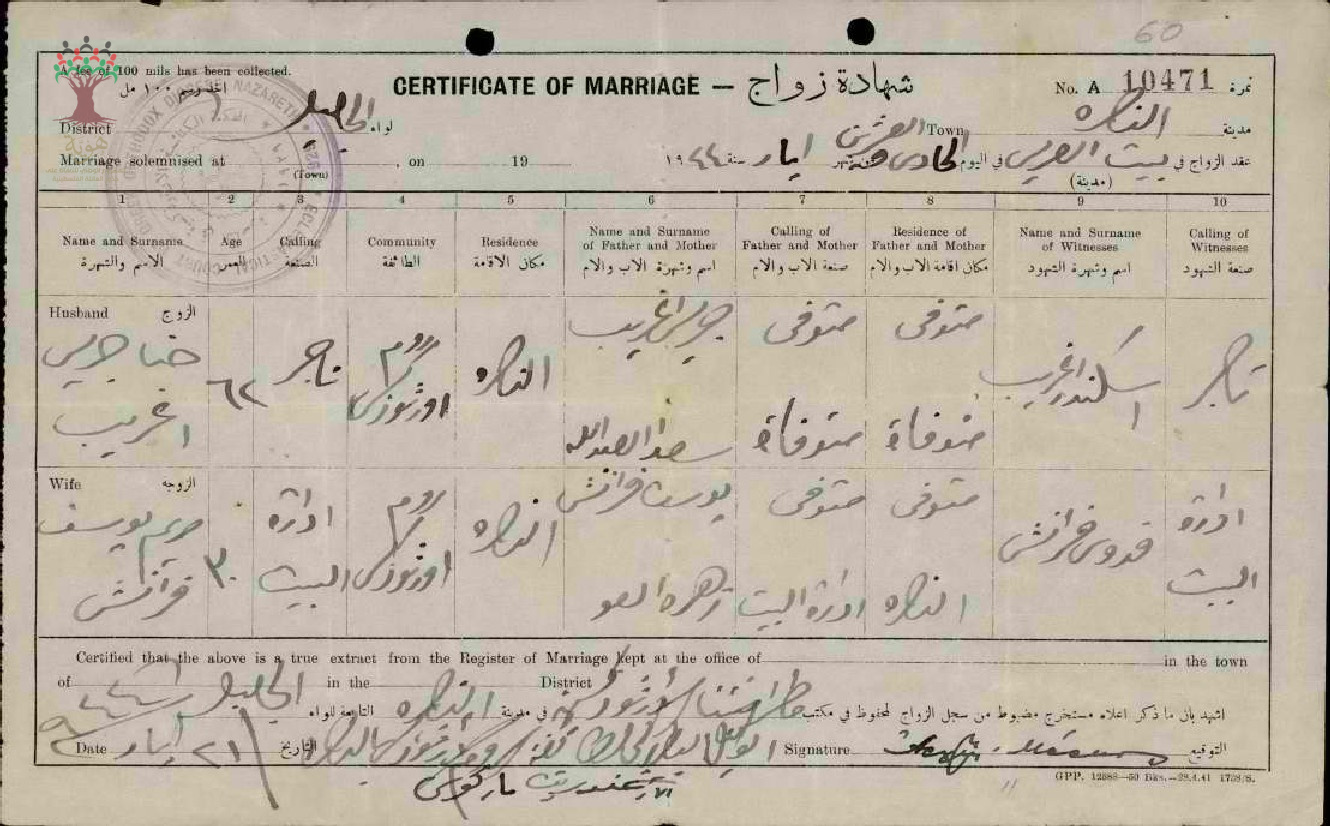 60
A fee of 100 mils has been collected.
CERTIFICATE OF MARRIAGE — شهادة زواج
No. A 10471 نمرة
District الجليل لواء Town الناصره مدينة
Marriage solemnised at , on 19 ١٩٤٤ سنة ايار شهر الحادي والعشرين في اليوم بيت العريس عقد الزواج في
(Town) (مدينة)
1 2 3 4 5 6 7 8 9 10
Name and Surname Age Calling Community Residence Name and Surname of Father and Mother Calling of Father and Mother Residence of Father and Mother Name and Surname of Witnesses Calling of Witnesses
الاسم والشهرة العمر الصنعة الطائفة مكان الاقامة اسم وشهرة الاب والام صنعة الاب والام مكان اقامة الاب والام اسم وشهرة الشهود صنعة الشهود
Husband الزوج
حنا جريس اغريب ٦٢ تاجر روم اورثوذكس الناصره جريس اغريب متوفى متوفى اسكندر اغريب تاجر
متوفاة متوفاة
Wife الزوجه
مريم يوسف فرانش ٣٠ ادارة البيت روم اورثوذكس الناصره يوسف فرانش متوفى متوفى فرانش ادارة البيت
زهره ادارة البيت الناصره
Certified that the above is a true extract from the Register of Marriage kept at the office of in the town
of in the District
اشهد بان ما ذكر اعلاه مستخرج مضبوط من سجل الزواج المحفوظ في مكتب في مدينة الناصره التابعة للواء الجليل
Date ٢١ ايار التاريخ Signature التوقيع
الارشمندريت ماركوس
GPP. 12888—50 Bks.—28.4.41 1758/S.